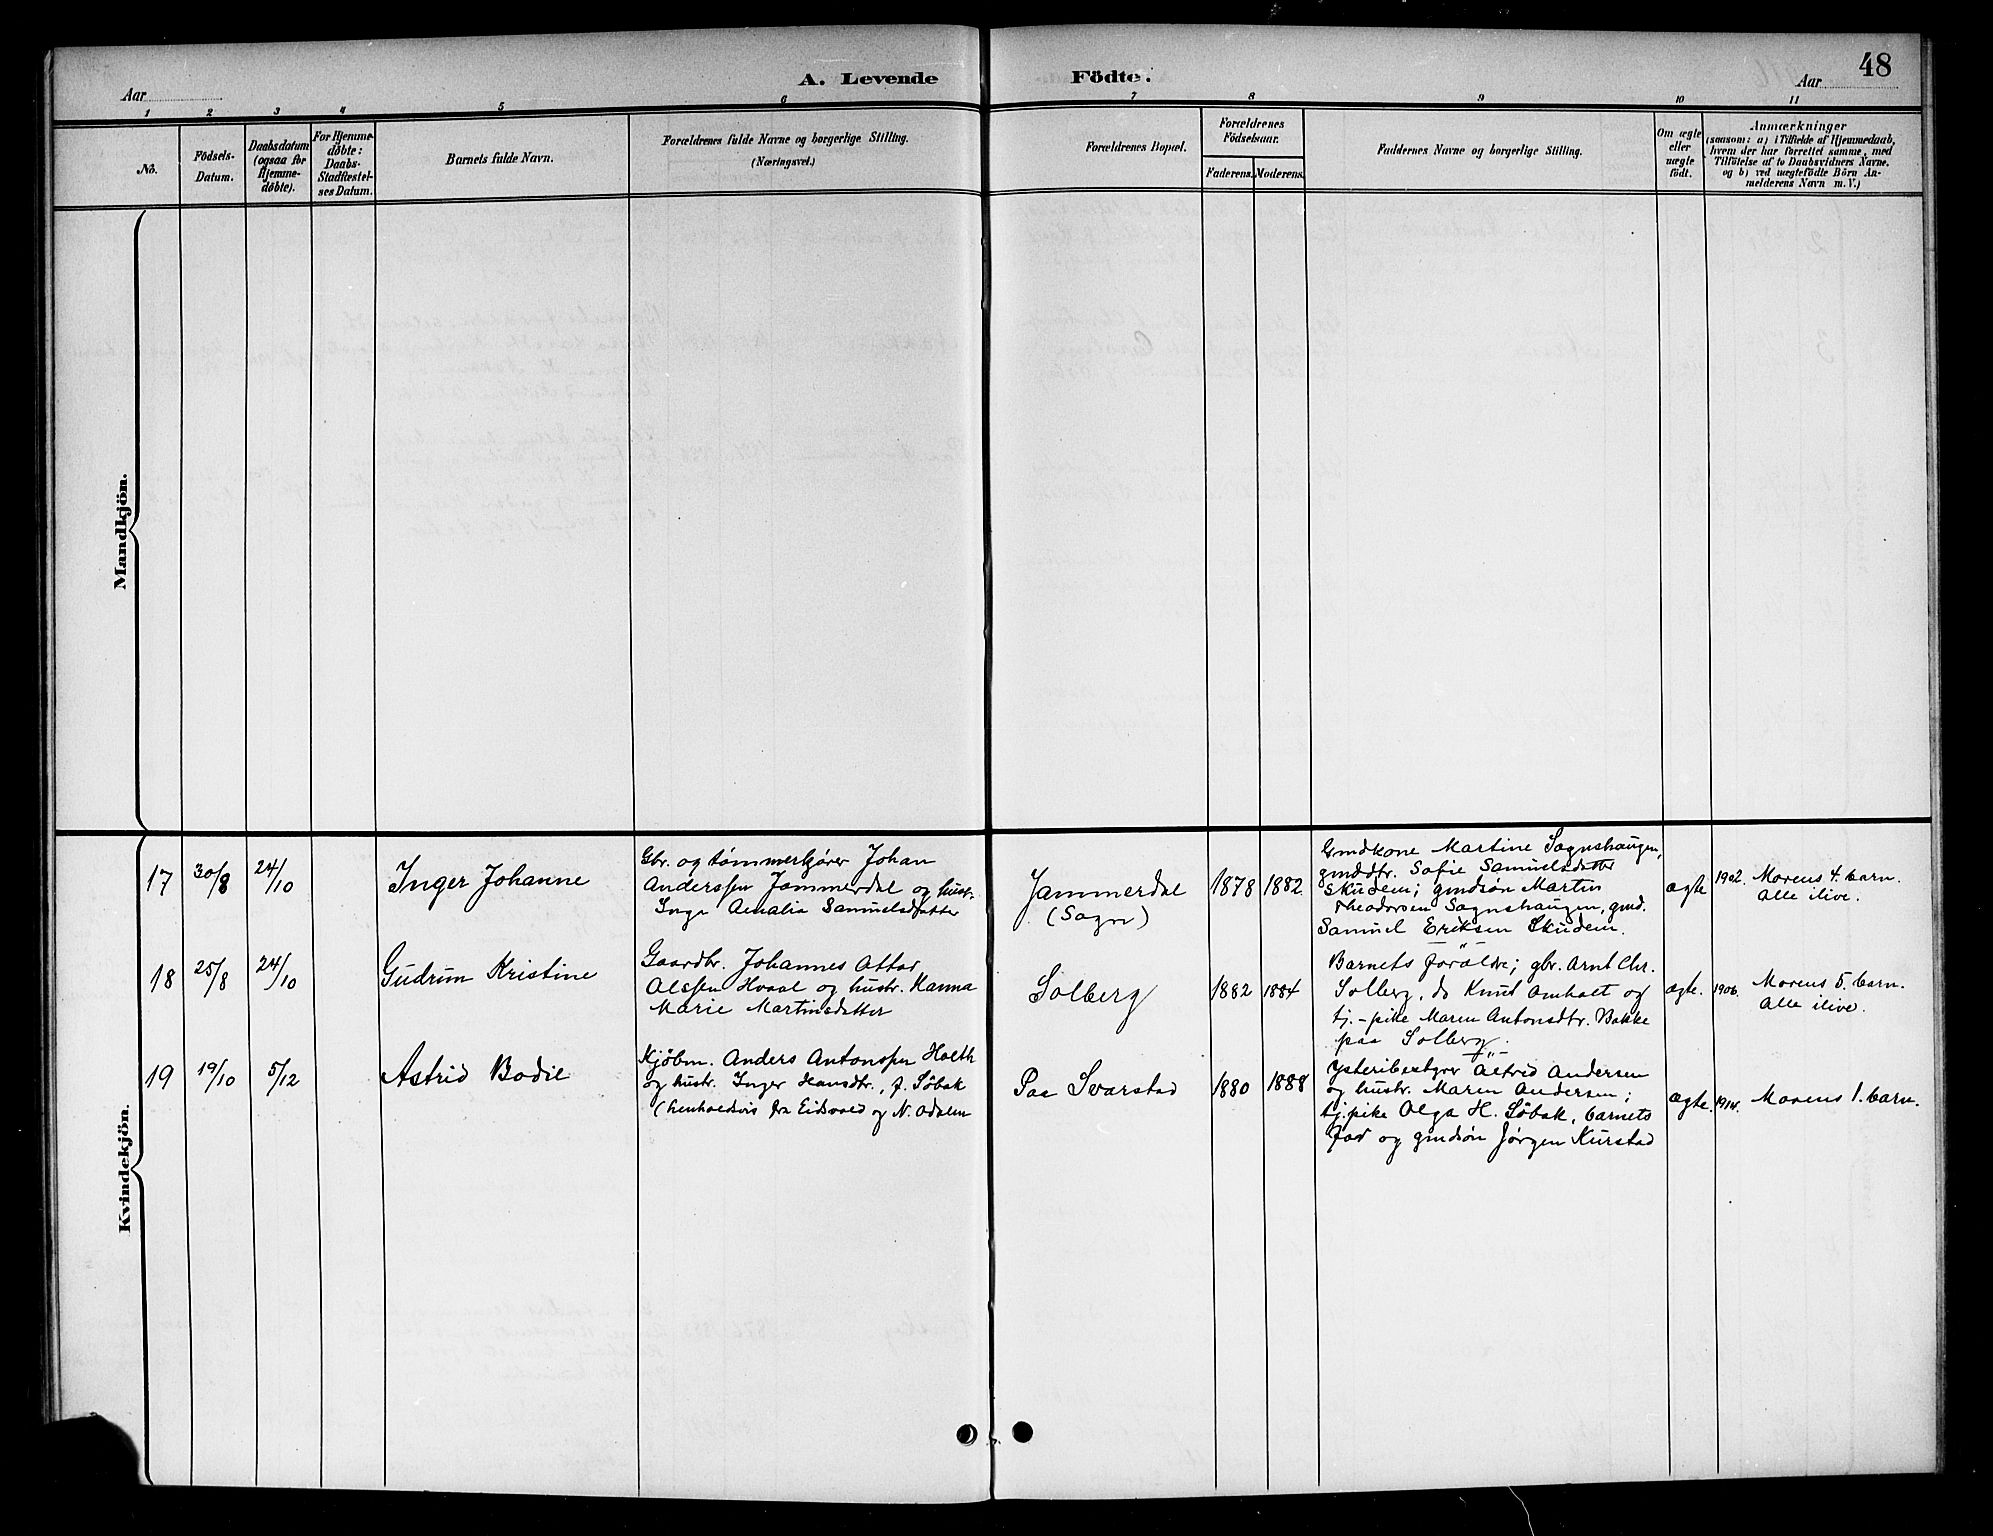 48
A. Levende Födte.
Aar
Aar
1 2 3 4 5 6 7 8 9 10 11
No.
Födsels-
Datum.
Daabsdatum
(ogsaa for
Hjemme-
döbte).
For Hjemme-
döbte:
Daabs-
Stadfæstel-
ses Datum.
Barnets fulde Navn.
Forældrenes fulde Navne og borgerlige Stilling.
(Næringsvei.)
Forældrenes Bopæl.
Forældrenes
Födselsaar.
Faderens. Moderens.
Faddernes Navne og borgerlige Stilling.
Om ægte
eller
uægte
födt.
Anmærkninger
(saasom: a) i Tilfælde af Hjemmedaab,
hvem der har forrettet samme, med
Tilföielse af to Daabsvidners Navne.
og b) ved uægtefödte Börn An-
melderens Navn m. V.)
Mandkjön.
Kvindekjön.
17
30/8
24/10
Inger Johanne
Gbr. og tømmerkjører Johan
Anderssen Jammerdal og hust.
Inga Amalia Samuelsdatter
Jammerdal
(Sogn)
1878 1882
Gmdkone Martine Sognshaugen,
gmddtr. Sofie Samuelsdatter
Skudem; gmdsøn Martin
Theodorsen Sognshaugen, gmd.
Samuel Eriksen Skudem.
ægte
1902. Morens 4. barn.
Alle ilive.
18
25/8
24/10
Gudrun Kristine
Gaardbr. Johannes Ottar
Olssen Hvaal og hustr. Hanna
Marie Martinsdatter
Solberg
1882 1884
Barnets foraldre; gbr. Arnt Chr.
Solberg, do Knut Omholt og
tj.-pike Maren Antonsdtr. Bakke
paa Solberg.
ægte.
1906. Morens 5. barn.
Alle ilive.
19
19/10
5/12
Astrid Bodil
Kjøbm. Anders Antonssen Holth
og hustr. Inger Hansdtr., f. Søbak
(henholdsvis fra Eidsvold og N. Odalen
Paa Svarstad
1880 1888
Ysteribestyrer Alfred Andersen
og hustr. Maren Andersen;
tj.pike Olga H. Søbak, barnets
far og gmdsøn Jørgen Kurstad
ægte.
1914. Morens 1. barn.